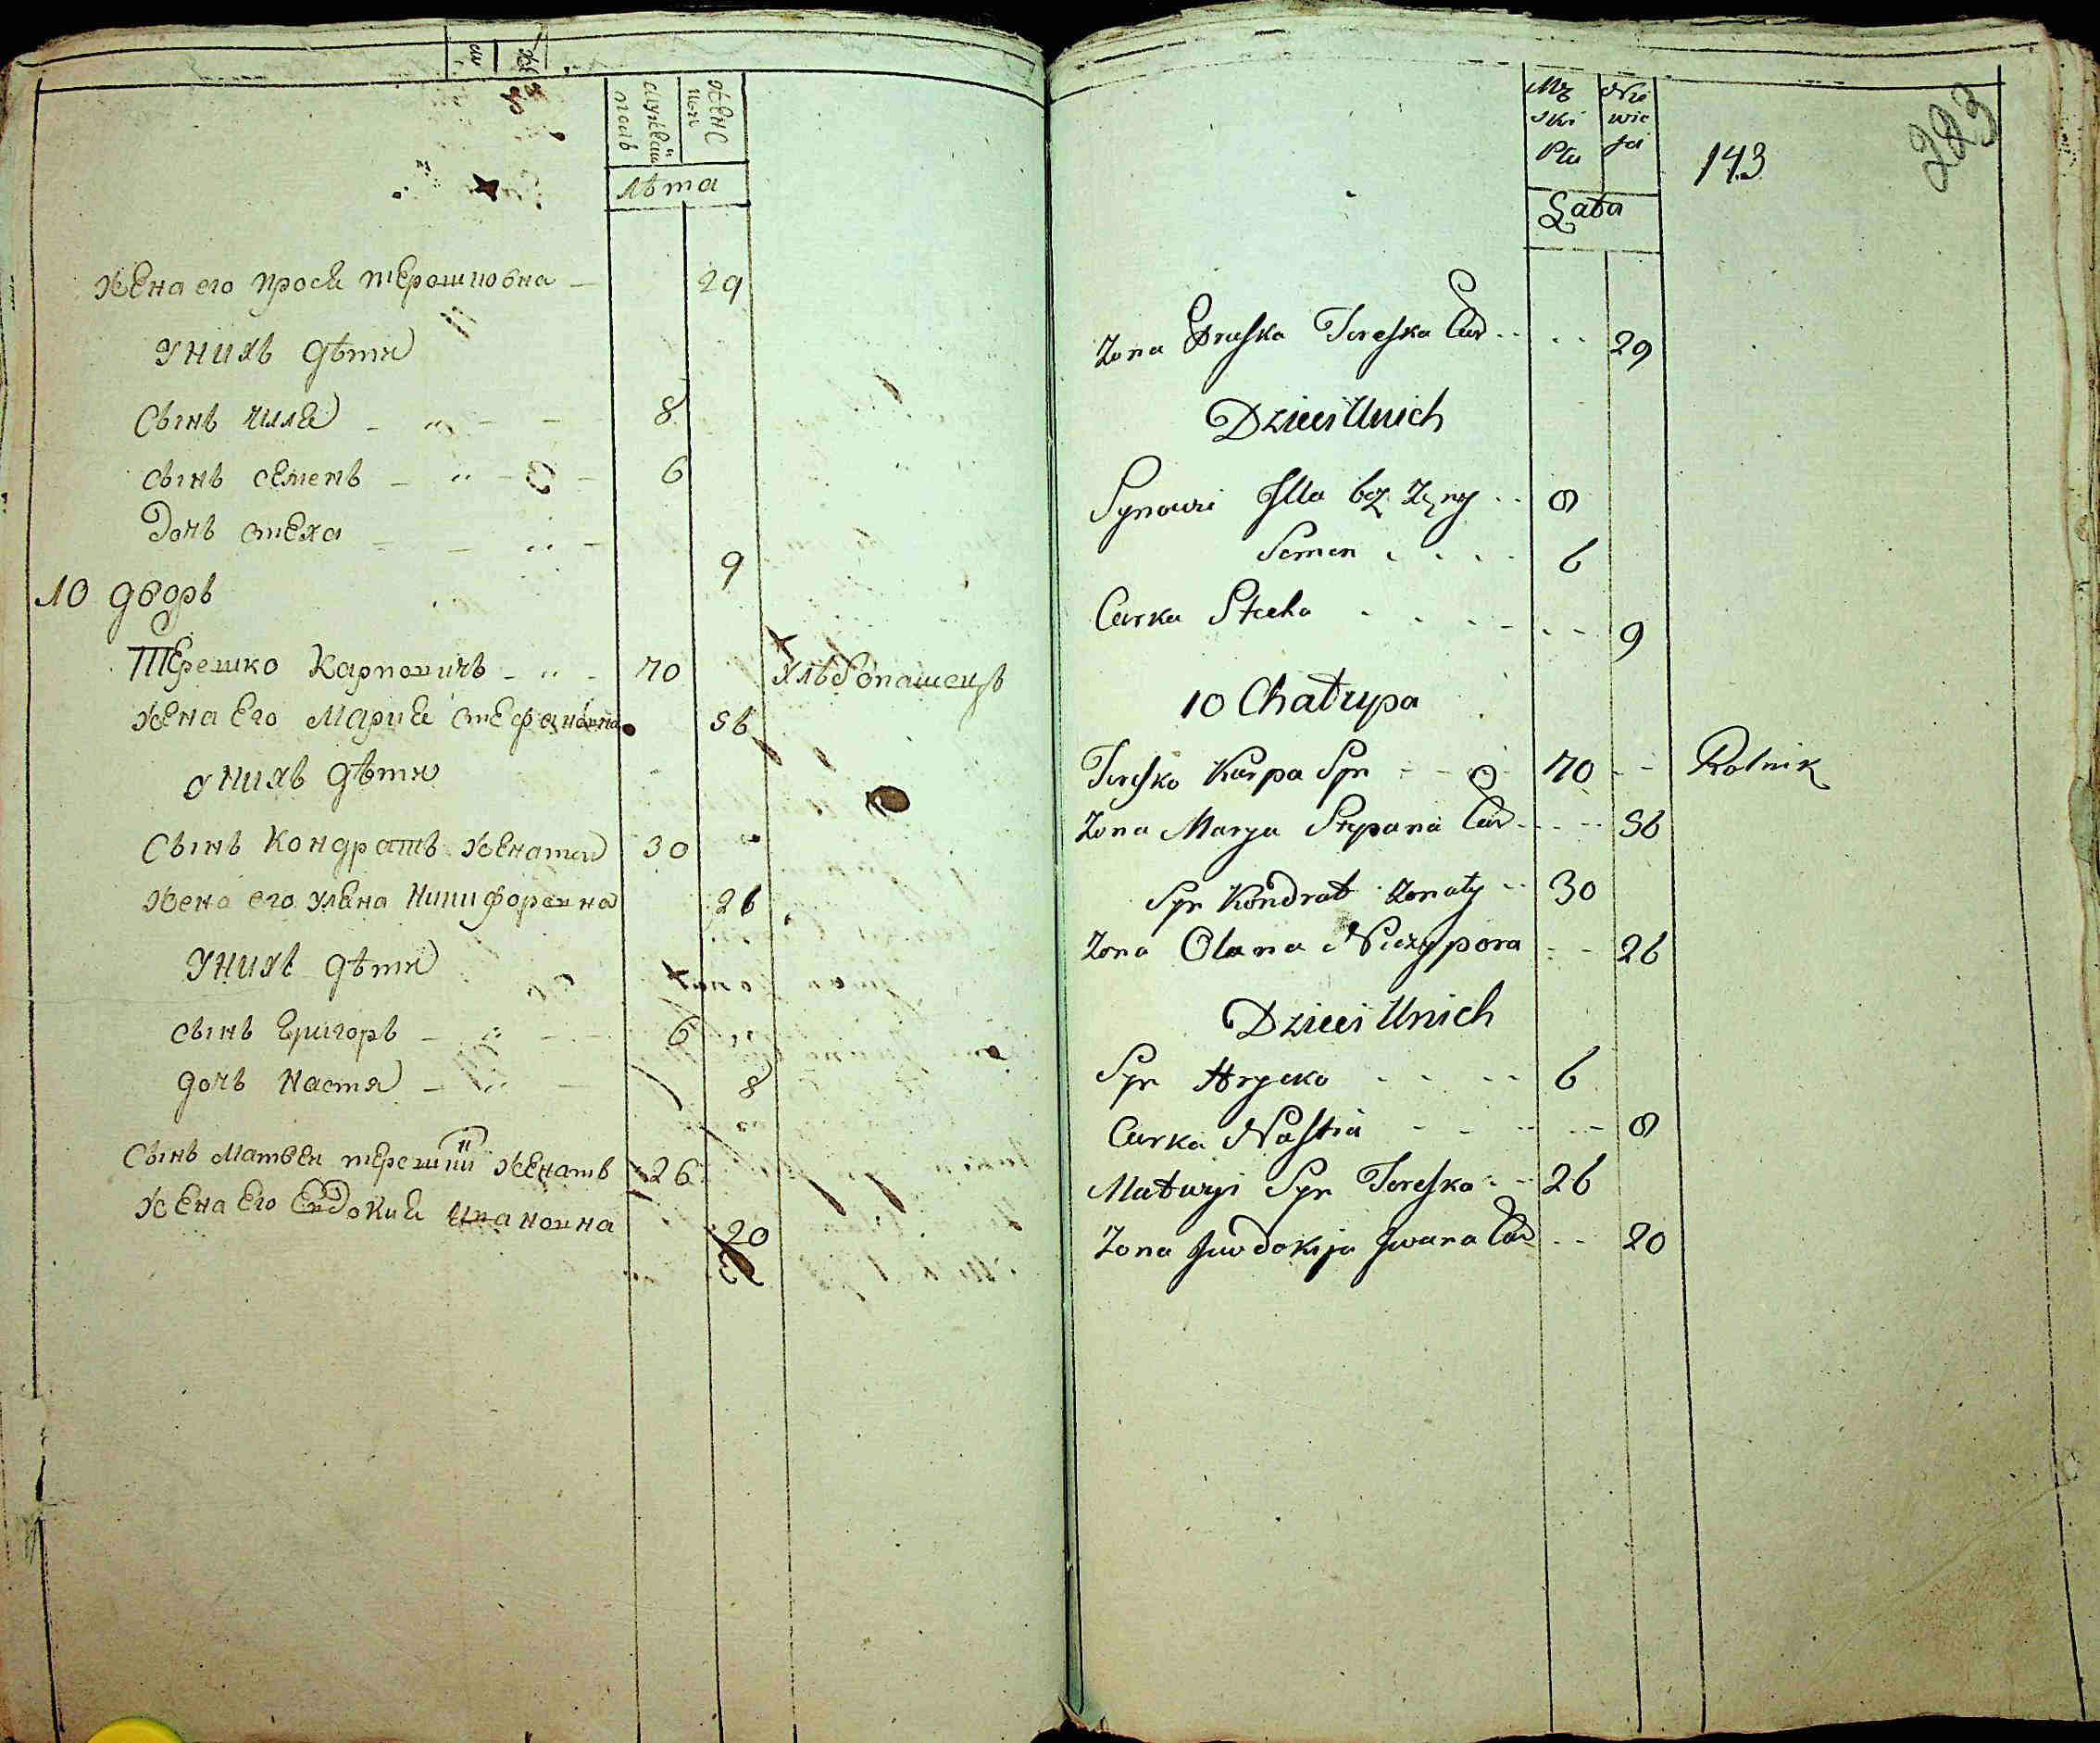 мужеск
полъ
женс
пол
лѣта
жена его прося терешковна – 29
У нихъ дѣти
Сынъ илля – „ – – 8
сынъ семенъ – „ – – 6
Дочь стеха – – „ – 9
10 дворъ
Терешко Карповичъ – „ – 70 хлѣбопашецъ
жена Его Мария стефановна 56
у нихъ дѣти
Сынъ Кондратъ женатъ 30
жена его Уляна Никифоровна 26
У нихъ дѣти
сынъ Григоръ – „ – – 6
дочь Настя – „ – 8
Сынъ Матвей терешковъ женатъ 26
жена Его Евдокия Ивановна 20
Mę
ski
Płci
Nie
wie
ści
Lata
143
223
Żona Pruska Tereska Cór .. .. 29
Dzieci Unich
Synowie Illa bez Żęny .. 8
Semen . . . . 6
Curka Stecha . . . – . – – 9
10 Chałupa
Teresko Karpa Syn – – – 70 – – Rolnik
Żona Marya Stepana Cór – – – 56
Syn Kondrat Żonaty .. 30
Żona Olana Niczypora – – 26
Dzieci Unich
Syn Hrycko . . – – 6
Curka Nastia – – – – – 8
Matwyi Syn Tereska – – 26
Żona Juwdokija Jwana Cór – – 20